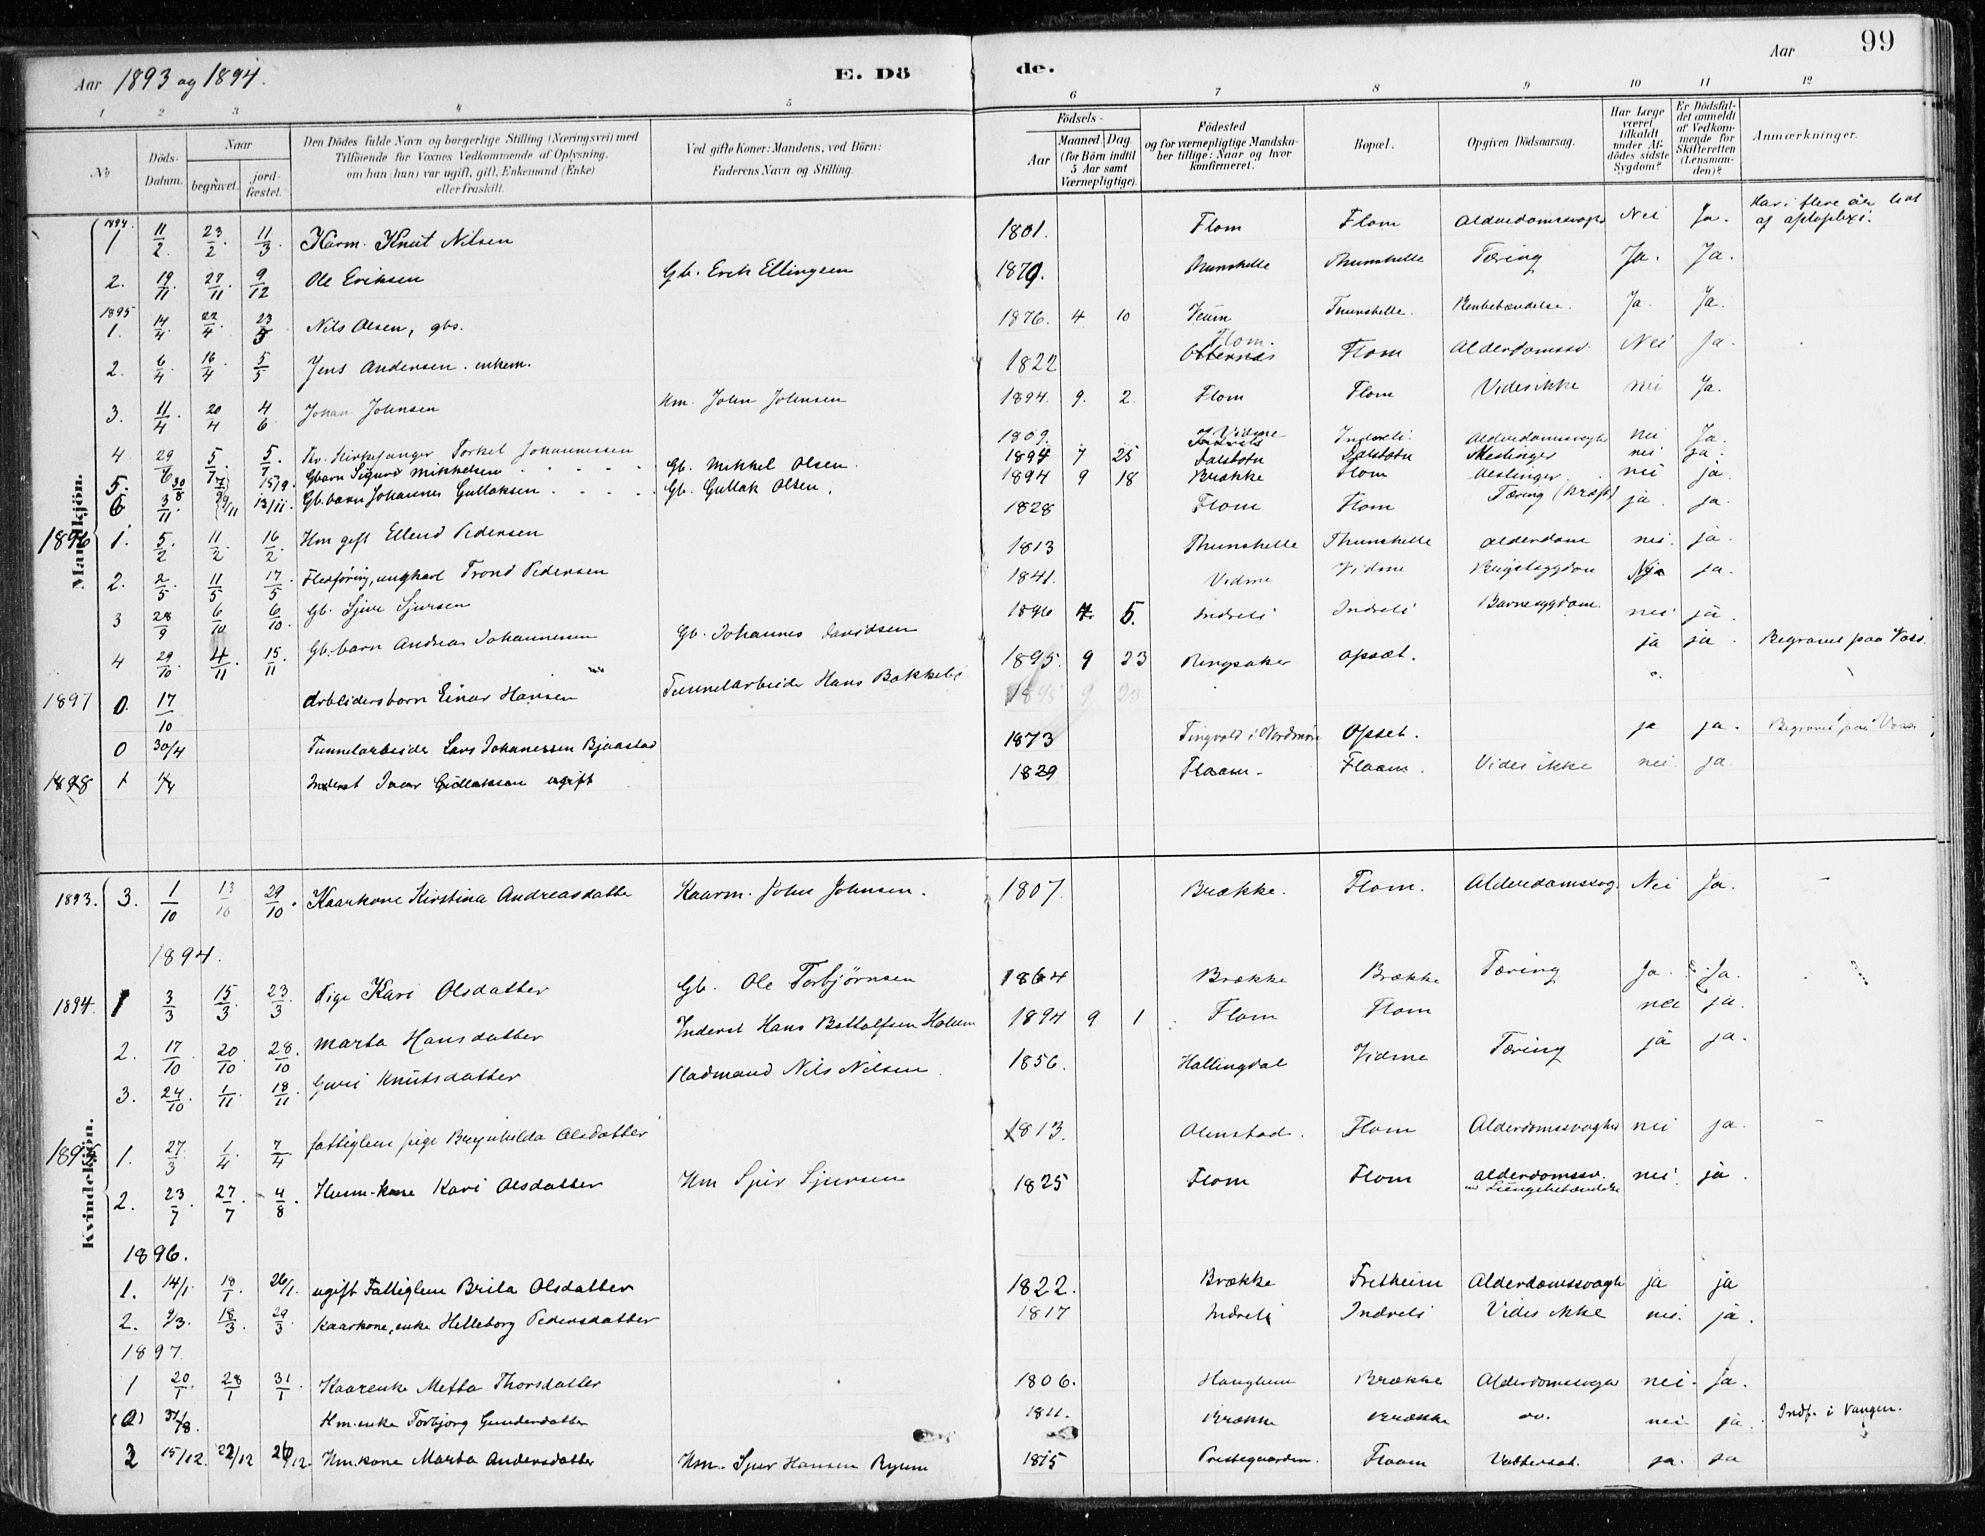 Aar 1893 og 1894. E. Dö de. Aar 99
1 2 3 4 5 6 7 8 9 10 11 12
№ Döds-Datum. Naar begravet. jordfæstet. Den Dödes fulde Navn og borgerlige Stilling (Næringsvei) med Tilföiende for Voxnes Vedkommende af Oplysning, om han (hun) var ugift, gift, Enkemand (Enke) eller fraskilt. Ved gifte Koner: Mandens, ved Börn: Faderens Navn og Stilling. Födsels- Aar Maaned. Dag. (for Börn indtil 5 Aar samt Værnepligtige). Födested og for værnepligtige Mandskaber tillige: Naar og hvor konfirmeret. Bopæl. Opgiven Dödsaarsag. Har Læge været tilkaldt under Afdödes sidste Sygdom? Er Dödsfaldet anmeldt af Vedkommende for Skifteretten (Lensmanden)? Anmærkninger.
Mandkjön.
1894 1 11/2 23/2 11/3 Karm. Knut Nilsen 1801. Flom Flom Alderdomssvaghed Nei Ja. Har i flere aar lidt af apoplexi.
2. 19/11 27/11 9/12 Ole Eriksen Gb. Erik Ellingsen 1879. Thunshelle Thunshelle Tæring Ja. Ja.
1895 1. 14/4 22/4 23/5 Nils Olsen, gbs. 1876. 4 10 Veum Thunshelle. Benbetændelse. Ja. Ja.
2. 6/4 16/4 5/5 Jens Andersen. enkem. 1822 Flom. Otternes Flom Alderdomssv. Nei Ja.
3. 11/4 20/4 4/6 Johan Johnsen Hm. John Johnsen 1894. 9. 2. Flom Flom Vides ikke nei Ja.
4 29/6 5/7 5/7 Fhv. Kirkesanger Torkel Johannessen 1809. Vidme Indreli Indreli. Alderdomssvaghed nei Ja.
5. 30/8 15/9. Gbarn Sigurd Mikkelsen Gb. Mikkel Olsen. 1894 7 25 Dalsbotn Dalsbotn Meslinger nei ja.
6 3/11 9/11 13/11. Gb. barn Johannes Gullaksen Gb. Gullak Olsen. 1894 9 18 Brække Flom Meslinger nei ja
1896 1. 5/2 11/2 16/2 Hm gift Ellend Pedersen 1828 Flom Flom Tæring (Kræft) ja ja.
2. 2/5 11/5 17/5 Fledføring, ungkarl Trond Pedersen 1813 Thunshelle Thunshelle alderdom nei. ja.
3 28/9 6/10 6/10. Gb. Sjur Sjursen 1841. Vidme Vidme Brystsygdom ja.
4 29/10. 4/11 15/11 Gb. barn Andreas Johannesen Gb. Johannes Davidsen 1896 5. Indreli Indreli Barnesygdom. nei ja
1897 0. 17/10 Arbeidersbarn Einar Hansen Tunnelarbeider Hans Bakkeli 1895. 9 23 Ringsaker Opsæt. ja ja Begravet paa Voss.
0 30/4 Tunnelarbeider Lars Johanessen Bjaastad 1873 Tingvold i Nordmøre Opset. ja ja. Begravet paa Voss
1898 1 1/4 Inderst Ivar Gullaksen ugift 1829 Flaam. Flaam. Vides ikke nei ja
Kvindekjön.
1893. 3. 1/10 13/10 29/10. Kaarkone Kirstina Andreasdatter Kaarm. John Johnsen. 1807. Brække. Flom. Alderdomssvag. Nei Ja.
1894.
1894. 1 3/3 15/3. 23/3 Pige Kari Olsdatter Gb. Ole Torbjørnsen 1864 Brække Brække Tæring Ja. Ja.
2. 17/10 20/10. 28/10 Marta Hansdatter Inderst Hans Bottolfsen Holum 1894 9 1 Flom Flom nei ja.
3. 24/10 1/11 18/11 Guri Knutsdatter Pladmand Nils Nilsen. 1856. Hallingdal Vidme Tæring ja ja.
1895 1. 27/3 1/4 7/4 fattiglem pige Brynhilda Olsdatter 1813. Olmstad. Flom Alderdomssvaghed nei ja.
2. 23/7 27/7 4/8 Husm-kone Kari Olsdatter Hm Sjur Sjursen 1825 Flom Flom alderdomssv. Lungebetændelse nei. ja.
1896.
1. 14/1. 18/1. 26/1. ugift Fattiglem Brita Olsdatter 1822. Brække Fretheim Alderdomssvaghed ja ja
2. 9/3. 18/3. 29/3 Kaarkone, enke Helleborg Pedersdatter 1817 Indreli Indreli Vides ikke nei. ja.
1897.
1 20/1 28/1 31/1 Kaarenke Metta Thorsdatter 1806. Haugheim Brække Alderdomssvaghed nei. Ja.
(0) 31/8. Hm. enke Torbjørg Gundersdatter 1811. Brække Brække do. nei. ja. Indf. i Vangen.
2 15/12. 22/12 26/12. Hm. kone Marta Andersdatter Hm. Sjur Hansen Ryum 1815 Prestegaarden. Flaam Vattersot. ja. ja